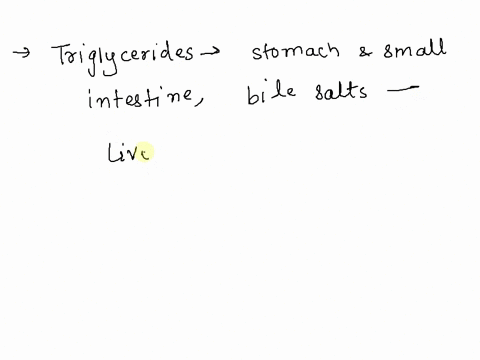 → Triglycerides → stomach & small
intestine, bile salts —
Live